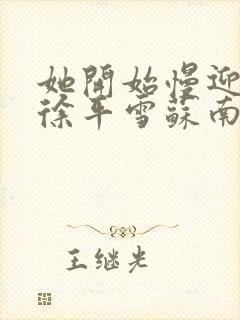 她開始慢迎
徐平雪蘇南
王继光